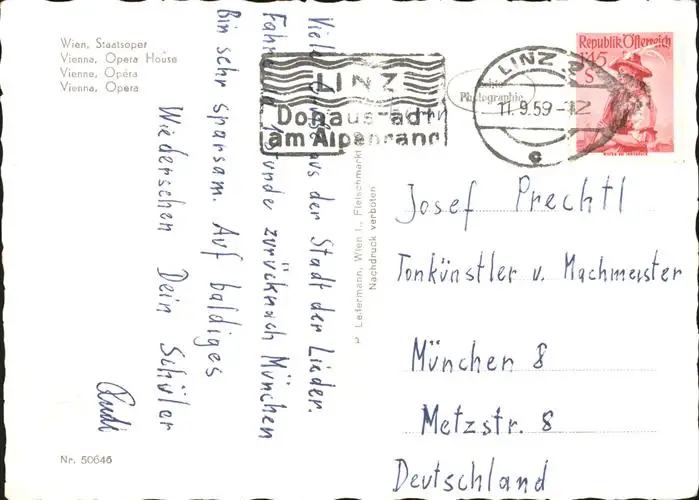 Wien, Staatsoper
Vienna, Opera House
Vienne, Opéra
Vienna, Opera
Viele Grüße aus der Stadt der Lieder.
Fahre in 1 Stunde zurück nach München
Bin sehr sparsam. Auf baldiges
Wiedersehen Dein Schüler
Rudi
Nr. 50646
P. Ledermann, Wien I., Fleischmarkt
Nachdruck verboten
LINZ
Donaustadt
am Alpenrand
Echte
Photographie
LINZ
11.9.59
c
Republik Österreich
1.45
S
Josef Prechtl
Tonkünstler u. Machmeister
München 8
Metzstr. 8
Deutschland